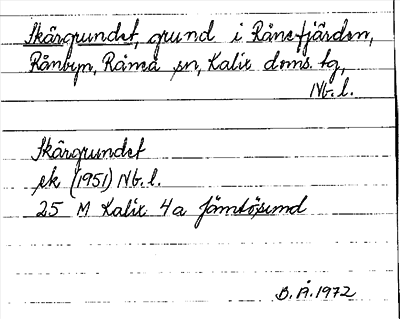 Skärgrundet, grund i Rånefjärden,
Rånbyn, Råneå sn, Kalix doms. tg,
Nb. l.
Skärgrundet
ek (1951) Nb. l.
25 M Kalix 4a Jämtösund
B. Å. 1972